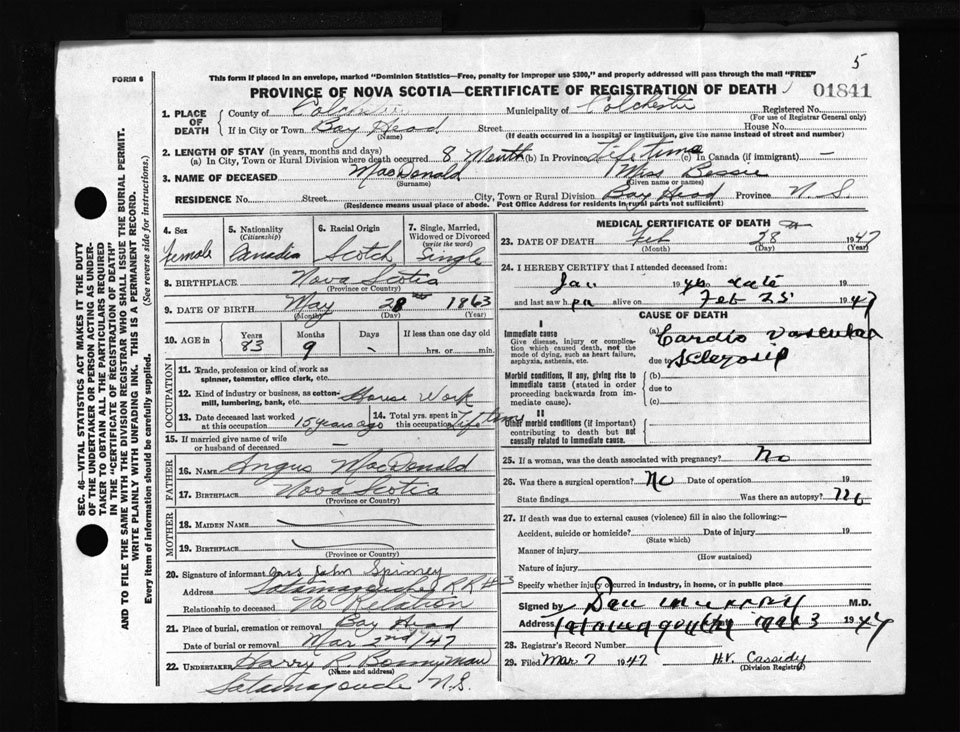 5
FORM 6
This form if placed in an envelope, marked "Dominion Statistics—Free, penalty for improper use $300," and properly addressed will pass through the mail "FREE"
PROVINCE OF NOVA SCOTIA—CERTIFICATE OF REGISTRATION OF DEATH
01841
1. PLACE OF DEATH
County of Colchester Municipality of Colchester Registered No.
(For use of Registrar General only)
If in City or Town Bay Head Street House No.
(Name) (If death occurred in a hospital or institution, give the name instead of street and number)
2. LENGTH OF STAY (in years, months and days)
(a) In City, Town or Rural Division where death occurred 8 Month (b) In Province Lifetime (c) In Canada (if immigrant) —
3. NAME OF DECEASED MacDonald Miss Bessie
(Surname) (Given name or names)
RESIDENCE No. Street City, Town or Rural Division Bay Head Province N.S.
(Residence means usual place of abode. Post Office Address for residents in rural parts not sufficient)
4. Sex
Female
5. Nationality
(Citizenship)
Canadia
6. Racial Origin
Scotch
7. Single, Married, Widowed or Divorced
(write the word)
Single
8. BIRTHPLACE Nova Scotia
(Province or Country)
9. DATE OF BIRTH May 28th 1863
(Month) (Day) (Year)
10. AGE in
Years Months Days If less than one day old
83 9 - hrs. or min.
OCCUPATION
11. Trade, profession or kind of work as spinner, teamster, office clerk, etc.
12. Kind of industry or business, as cotton-mill, lumbering, bank, etc. House Work
13. Date deceased last worked at this occupation 15 years ago
14. Total yrs. spent in this occupation Life time
15. If married give name of wife or husband of deceased —
FATHER
16. NAME Angus MacDonald
17. BIRTHPLACE Nova Scotia
(Province or Country)
MOTHER
18. MAIDEN NAME
19. BIRTHPLACE
(Province or Country)
20. Signature of informant Mrs John Spinney
Address Tatamagouche R R # 3
Relationship to deceased No Relation
21. Place of burial, cremation or removal Bay Head
Date of burial or removal Mar 2nd/47
22. UNDERTAKER Harry R. Bonnyman
(Name and address)
Tatamagouche N.S.
MEDICAL CERTIFICATE OF DEATH
23. DATE OF DEATH Feb 28th 1947
(Month) (Day) (Year)
24. I HEREBY CERTIFY that I attended deceased from:
Jan 1946 to date 19
and last saw her alive on Feb 25 1947
CAUSE OF DEATH
I
Immediate cause
Give disease, injury or complication which caused death, not the mode of dying, such as heart failure, asphyxia, asthenia, etc.
(a) Cardio Vascular
due to Sclerosis
Morbid conditions, if any, giving rise to immediate cause (stated in order proceeding backwards from immediate cause).
(b)
due to
(c)
II
Other morbid conditions (if important) contributing to death but not causally related to immediate cause.
25. If a woman, was the death associated with pregnancy? No
26. Was there a surgical operation? No Date of operation 19
State findings Was there an autopsy? No
27. If death was due to external causes (violence) fill in also the following:—
Accident, suicide or homicide? Date of injury 19
(State which)
Manner of injury
(How sustained)
Nature of injury
Specify whether injury occurred in industry, in home, or in public place
Signed by Dan Murray M.D.
Address Tatamagouche Mar 3 1947
28. Registrar's Record Number
29. Filed Mar 7 1947 H.V. Cassidy
(Division Registrar)
SEC. 46—VITAL STATISTICS ACT MAKES IT THE DUTY
OF THE UNDERTAKER OR PERSON ACTING AS UNDER-
TAKER TO OBTAIN ALL THE PARTICULARS REQUIRED
IN THE "CERTIFICATE OF REGISTRATION OF DEATH"
AND TO FILE THE SAME WITH THE DIVISION REGISTRAR WHO SHALL ISSUE THE BURIAL PERMIT.
WRITE PLAINLY WITH UNFADING INK. THIS IS A PERMANENT RECORD.
Every item of information should be carefully supplied. (See reverse side for instructions.)